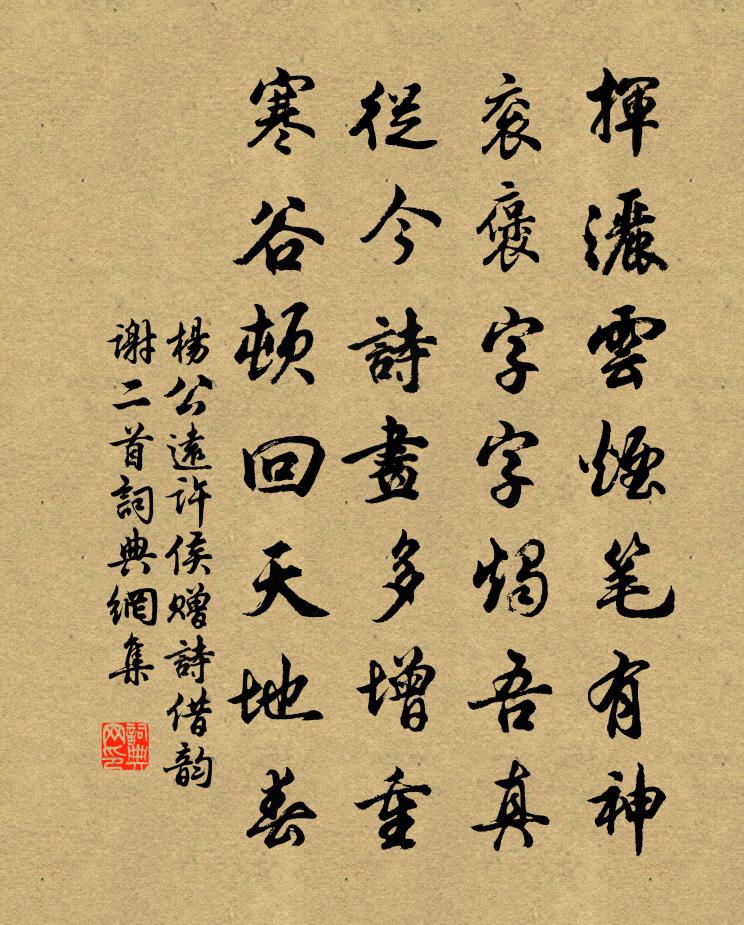 揮灑雲煙笔有神
袞褒字字燭吾真
從今詩畫多增重
寒谷頓回天地春
楊公遠許侯贈詩借韵
謝二首詞典網集
詞典网印